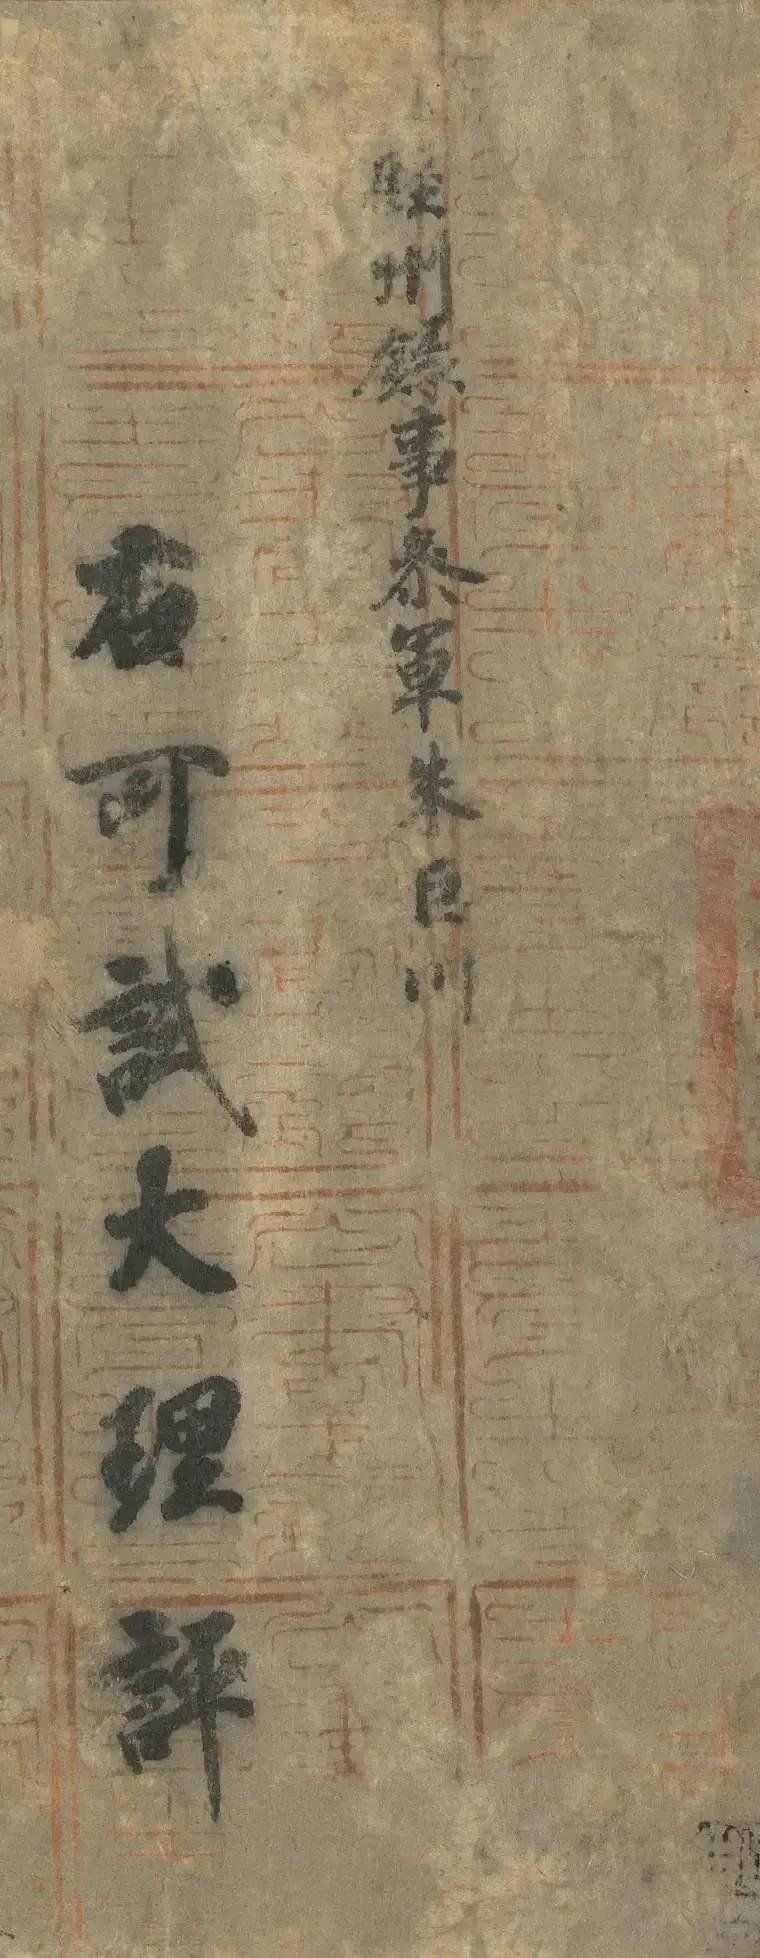 睦州錄事參軍朱巨川
右可試大理評